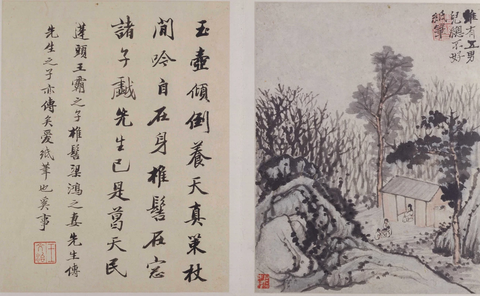 雖有五男
兒總不好
紙筆
玉壺傾倒養天真策杖
閒吟自在身椎髻在
諸子戲先生已是葛天民
蓬頭王霸之子椎髻梁鴻之妻先生傳
先生之子亦傳矣愛紙筆也奚事